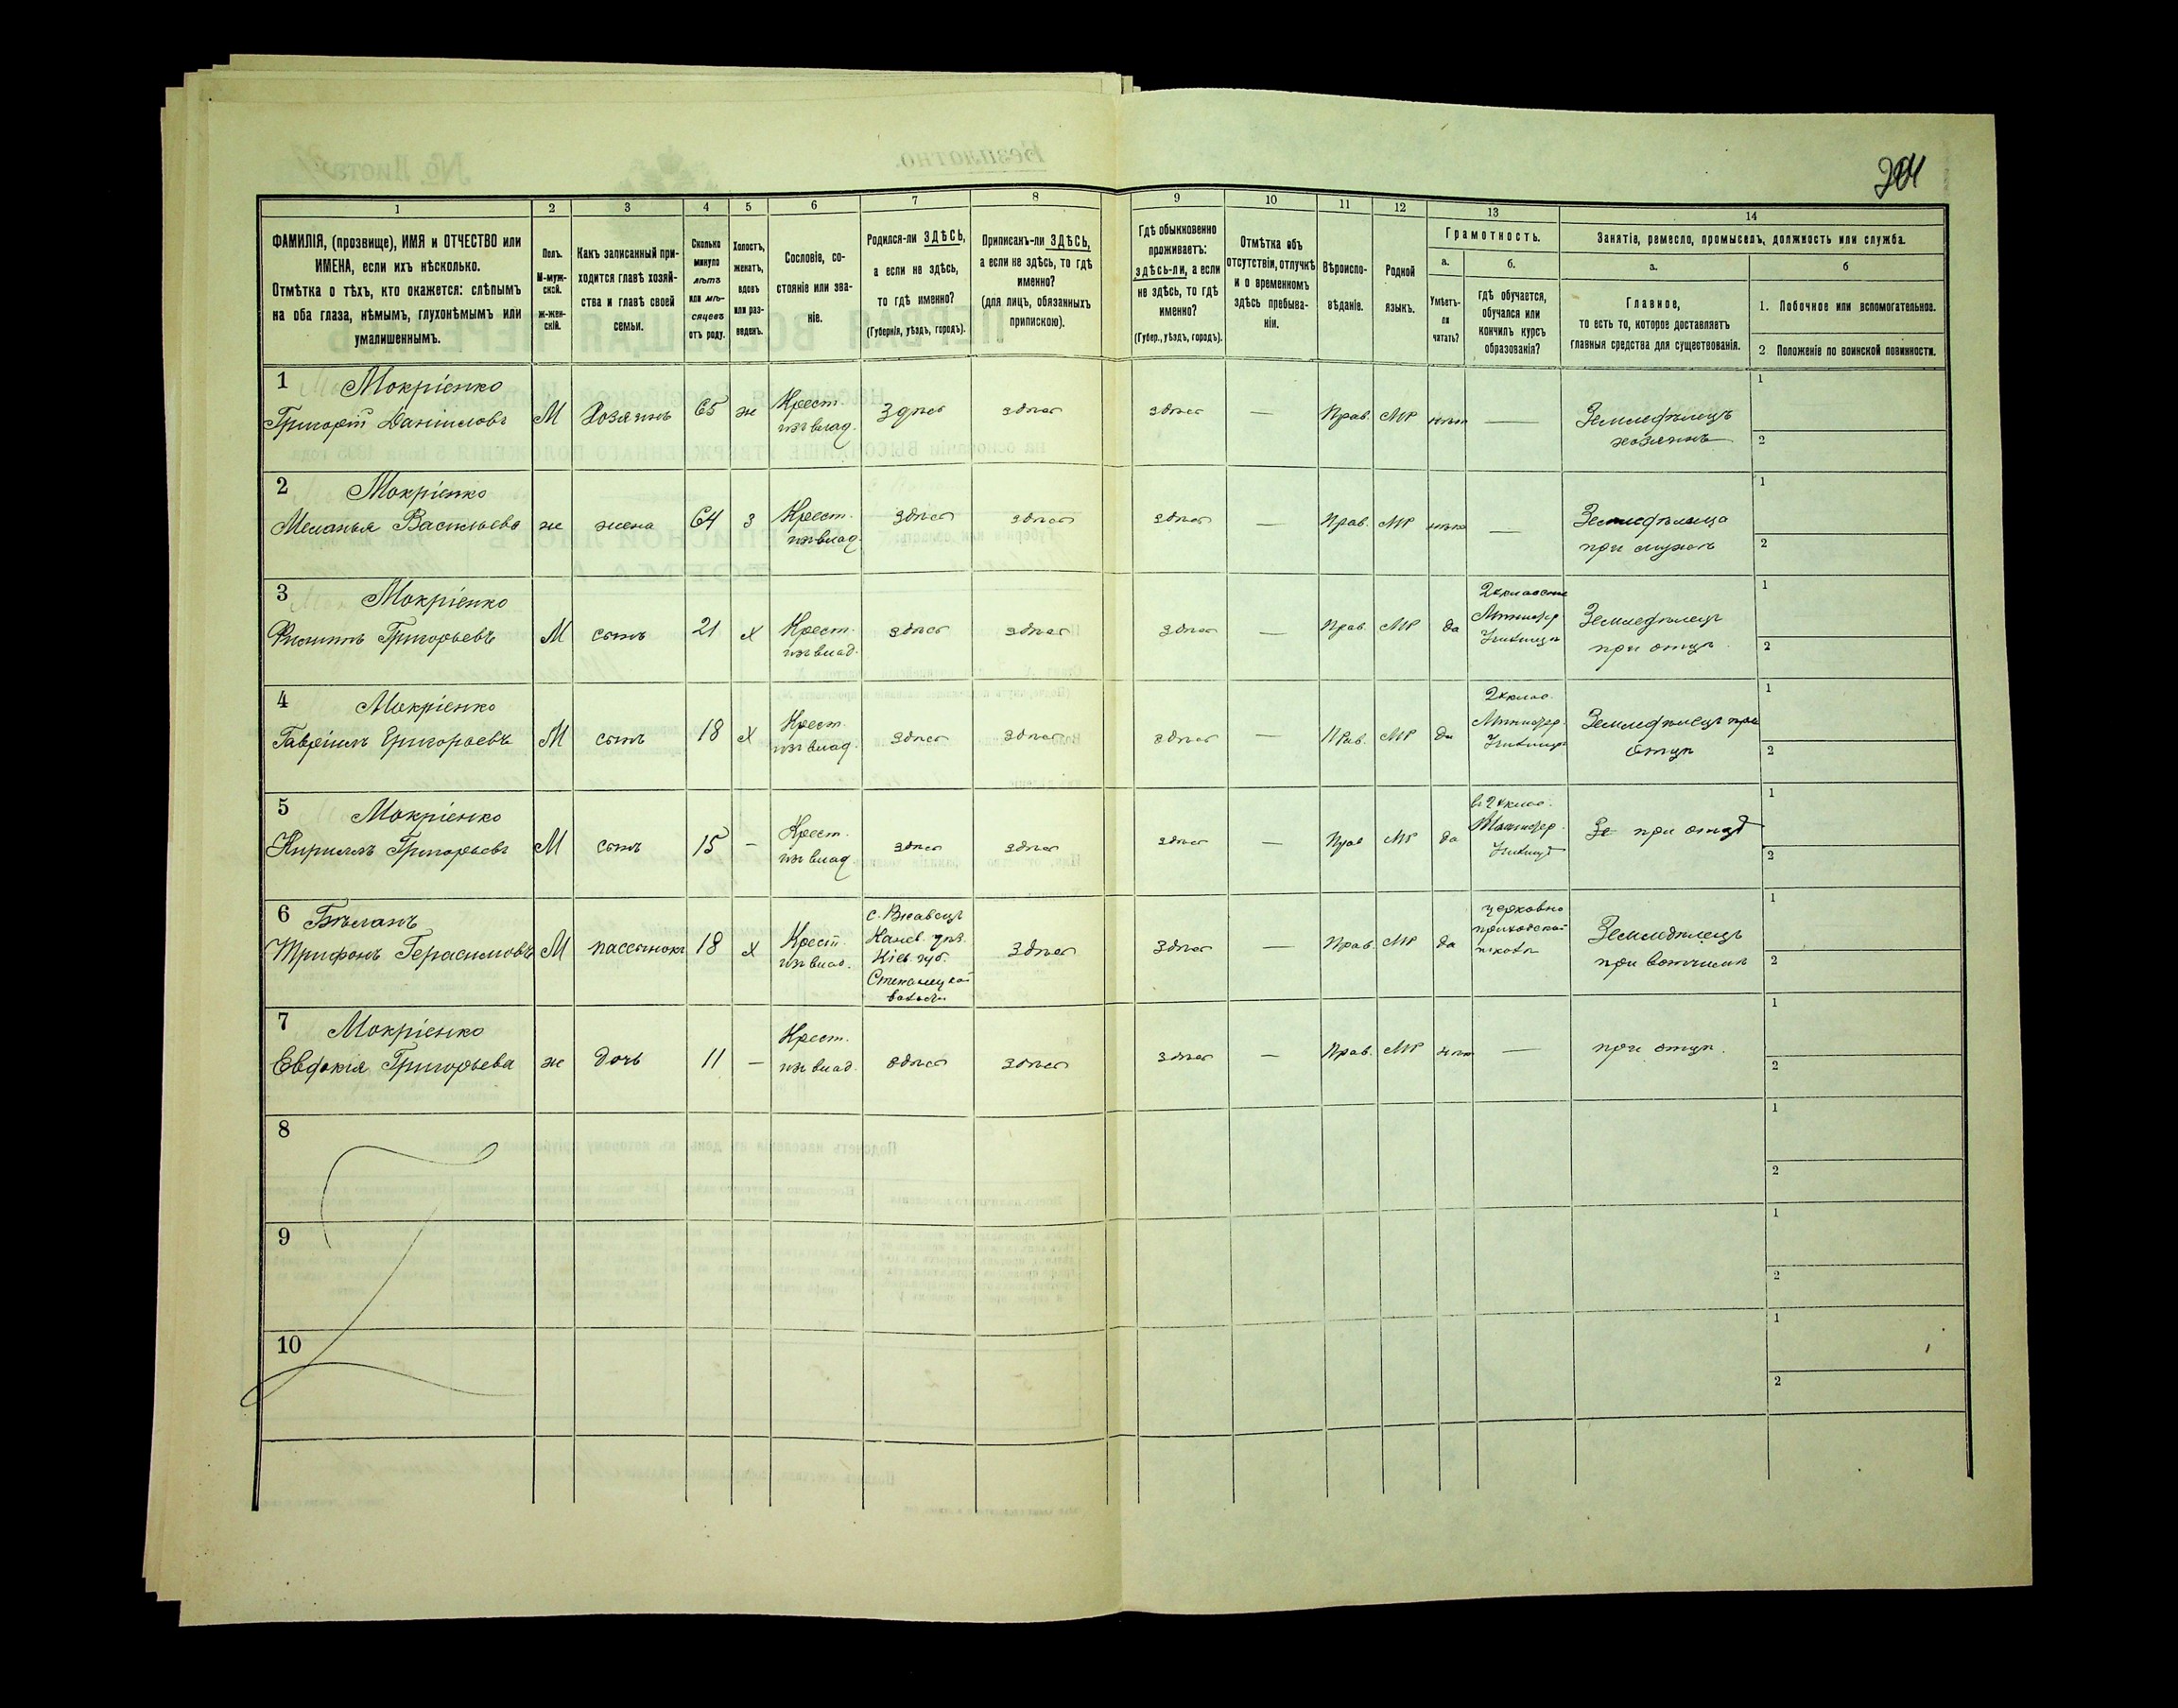 204
1 2 3 4 5 6 7 8 9 10 11 12 13 14
ФАМИЛІЯ, (прозвище), ИМЯ и ОТЧЕСТВО или
ИМЕНА, если ихъ нѣсколько.
Отмѣтка о тѣхъ, кто окажется: слѣпымъ
на оба глаза, нѣмымъ, глухонѣмымъ или
умалишеннымъ.
Полъ.
М-муж-
ской.
ж-жен-
скій.
Какъ записанный при-
ходится главѣ хозяй-
ства и главѣ своей
семьи.
Сколько
минуло
лѣтъ
или мѣ-
сяцевъ
отъ роду.
Холостъ,
женатъ,
вдовъ
или раз-
веденъ.
Сословіе, со-
стояніе или зва-
ніе.
Родился-ли ЗДѢСЬ,
а если не здѣсь,
то гдѣ именно?
(Губернія, уѣздъ, городъ).
Приписанъ-ли ЗДѢСЬ,
а если не здѣсь, то гдѣ
именно?
(для лицъ, обязанныхъ
припискою).
Гдѣ обыкновенно
проживаетъ:
здѣсь-ли, а если
не здѣсь, то гдѣ
именно?
(Губер., уѣздъ, городъ).
Отмѣтка объ
отсутствіи, отлучкѣ
и о временномъ
здѣсь пребыва-
ніи.
Вѣроиспо-
вѣданіе.
Родной
языкъ.
Грамотность.
а.
Умѣетъ-
ли
читать?
б.
гдѣ обучается,
обучался или
кончилъ курсъ
образованія?
Занятіе, ремесло, промыселъ, должность или служба.
а.
Главное,
то есть то, которое доставляетъ
главныя средства для существованія.
б
1. Побочное или вспомогательное.
2 Положеніе по воинской повинности.
1 Мокріенко
Григорій Даніиловъ М Хозяинъ 65 ж Крест. изъ влад. здѣсь здѣсь здѣсь — Прав. МР нѣтъ — Земледѣлецъ
хозяинъ
1
2
2 Мокріенко
Меланья Васильева ж жена 64 з Крест. изъ влад. здѣсь здѣсь здѣсь — Прав. МР нѣтъ — Земледѣлица
при мужѣ
1
2
3 Мокріенко
Филиппъ Григорьевъ М сынъ 21 х Крест. изъ влад. здѣсь здѣсь здѣсь — Прав. МР да
2хклассное
Министер
Училище
Земледѣлецъ
при отцѣ
1
2
4 Мокріенко
Гавріилъ Григорьевъ М сынъ 18 х Крест. изъ влад. здѣсь здѣсь здѣсь — Прав. МР да
2хклас.
Министер.
Училище
Земледѣлецъ при
отцѣ
1
2
5 Мокріенко
Кириллъ Григорьевъ М сынъ 15 — Крест. изъ влад здѣсь здѣсь здѣсь — Прав МР да
въ 2хклас.
Министер.
Училищѣ
Зе при отцѣ
1
2
6 Бѣланъ
Трифонъ Герасимовъ М пассынокъ 18 х Крест. изъ влад.
Канев. уѣз.
Кіев. губ.
Степанецкой
волости
здѣсь здѣсь — Прав. МР да
церковно
приходской
школѣ
Земледѣлецъ
при вотчимѣ
1
2
7 Мокріенко
Евдокія Григорьева ж дочь 11 — Крест. изъ влад. здѣсь здѣсь здѣсь — Прав. МР нѣтъ — при отцѣ.
1
2
8
1
2
9
1
2
10
1
2